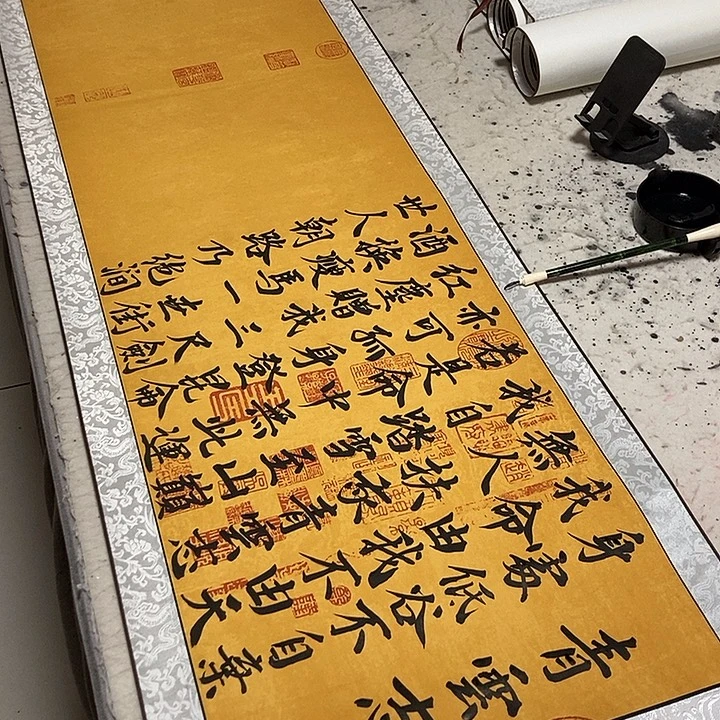 青雲志
身處低谷不自棄
我命由我不由天
無人扶我青雲志
我自踏雪至山巔
若是命中無此運
亦可孤身登昆侖
紅塵贈我三尺劍
酒換瘦馬一世街
世人朝路乃絕澗